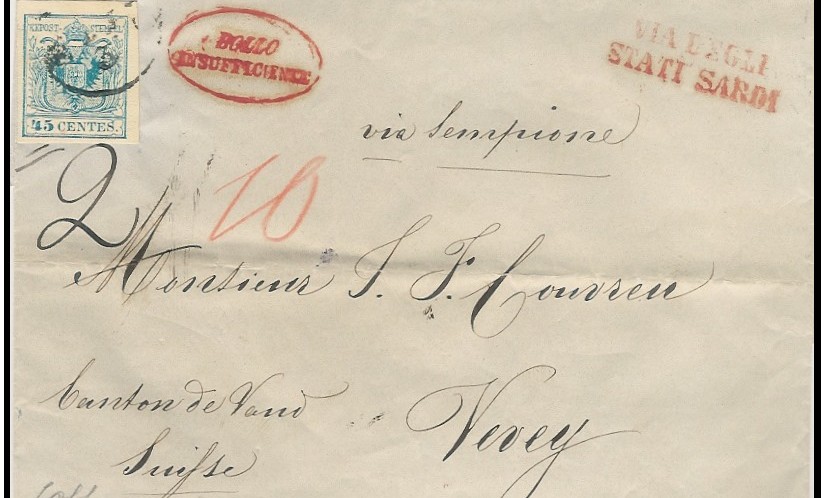 KKPOST-STEMPEL
45 CENTES.
BOLLO
INSUFFICIENTE
VIA DEGLI
STATI SARDI
via Sempione
2
10
Monsieur J. F. Couvreu
Canton de Vaud
Vevey
Suisse